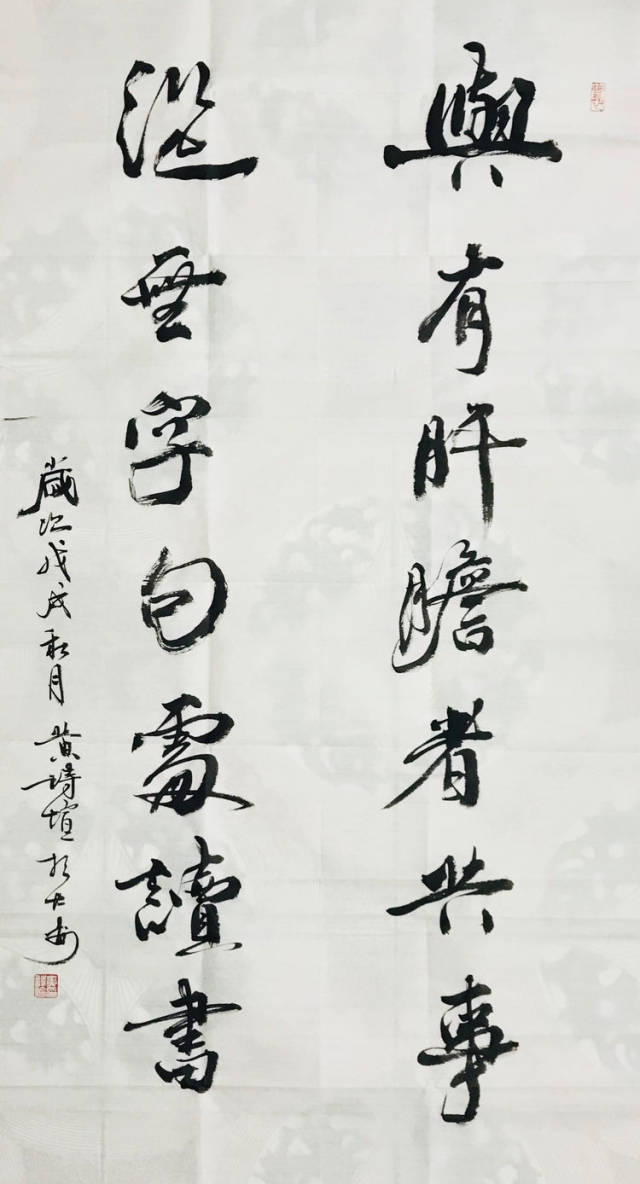 與有肝膽者共事
從無字句處讀書
歲次戊戌秋月 黃詩 於